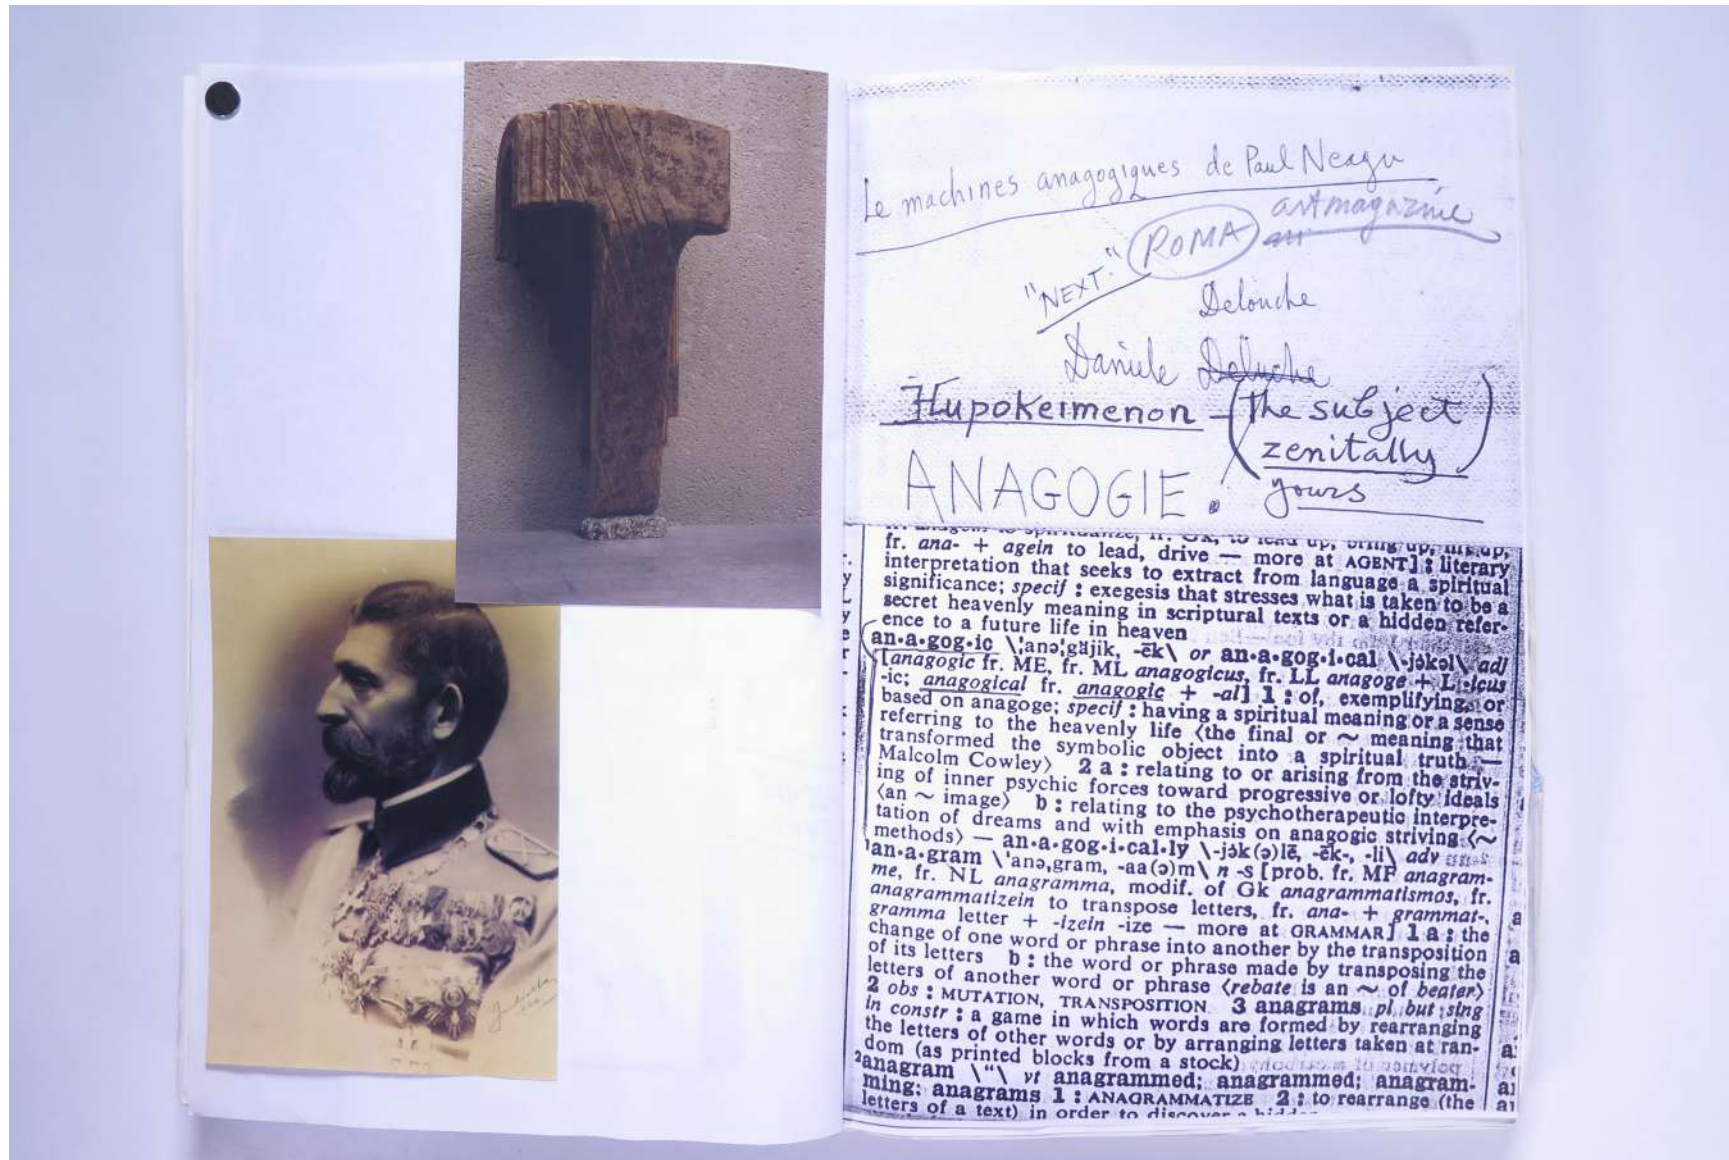 Le machines anagogiques de Paul Neagu
"NEXT." ROMA artmagazine
Delouche
Daniele Deluche
Hupokeimenon - (the subject
zenitally)
ANAGOGIE. yours
fr. ana- + agein to lead, drive — more at AGENT] : literary
interpretation that seeks to extract from language a spiritual
significance; specif : exegesis that stresses what is taken to be a
secret heavenly meaning in scriptural texts or a hidden refer-
ence to a future life in heaven
an·a·gog·ic \ˌanəˈgäjik, -ēk\ or an·a·gog·i·cal \-jəkəl\ adj
[anagogic fr. ME, fr. ML anagogicus, fr. LL anagoge + L -icus
-ic; anagogical fr. anagogic + -al] 1 : of, exemplifying, or
based on anagoge; specif : having a spiritual meaning or a sense
referring to the heavenly life ⟨the final or ~ meaning that
transformed the symbolic object into a spiritual truth —
Malcolm Cowley⟩ 2 a : relating to or arising from the striv-
ing of inner psychic forces toward progressive or lofty ideals
⟨an ~ image⟩ b : relating to the psychotherapeutic interpre-
tation of dreams and with emphasis on anagogic striving ⟨~
methods⟩ — an·a·gog·i·cal·ly \-jək(ə)lē, -ēk-, -li\ adv
¹an·a·gram \ˈanəˌgram, -aa(ə)m\ n -s [prob. fr. MF anagram-
me, fr. NL anagramma, modif. of Gk anagrammatismos, fr.
anagrammatizein to transpose letters, fr. ana- + grammat-,
gramma letter + -izein -ize — more at GRAMMAR] 1 a : the
change of one word or phrase into another by the transposition
of its letters b : the word or phrase made by transposing the
letters of another word or phrase ⟨rebate is an ~ of beater⟩
2 obs : MUTATION, TRANSPOSITION 3 anagrams pl but sing
in constr : a game in which words are formed by rearranging
the letters of other words or by arranging letters taken at ran-
dom (as printed blocks from a stock)
²anagram \"\ vt anagrammed; anagrammed; anagram-
ming; anagrams 1 : ANAGRAMMATIZE 2 : to rearrange (the
letters of a text) in order to discover a